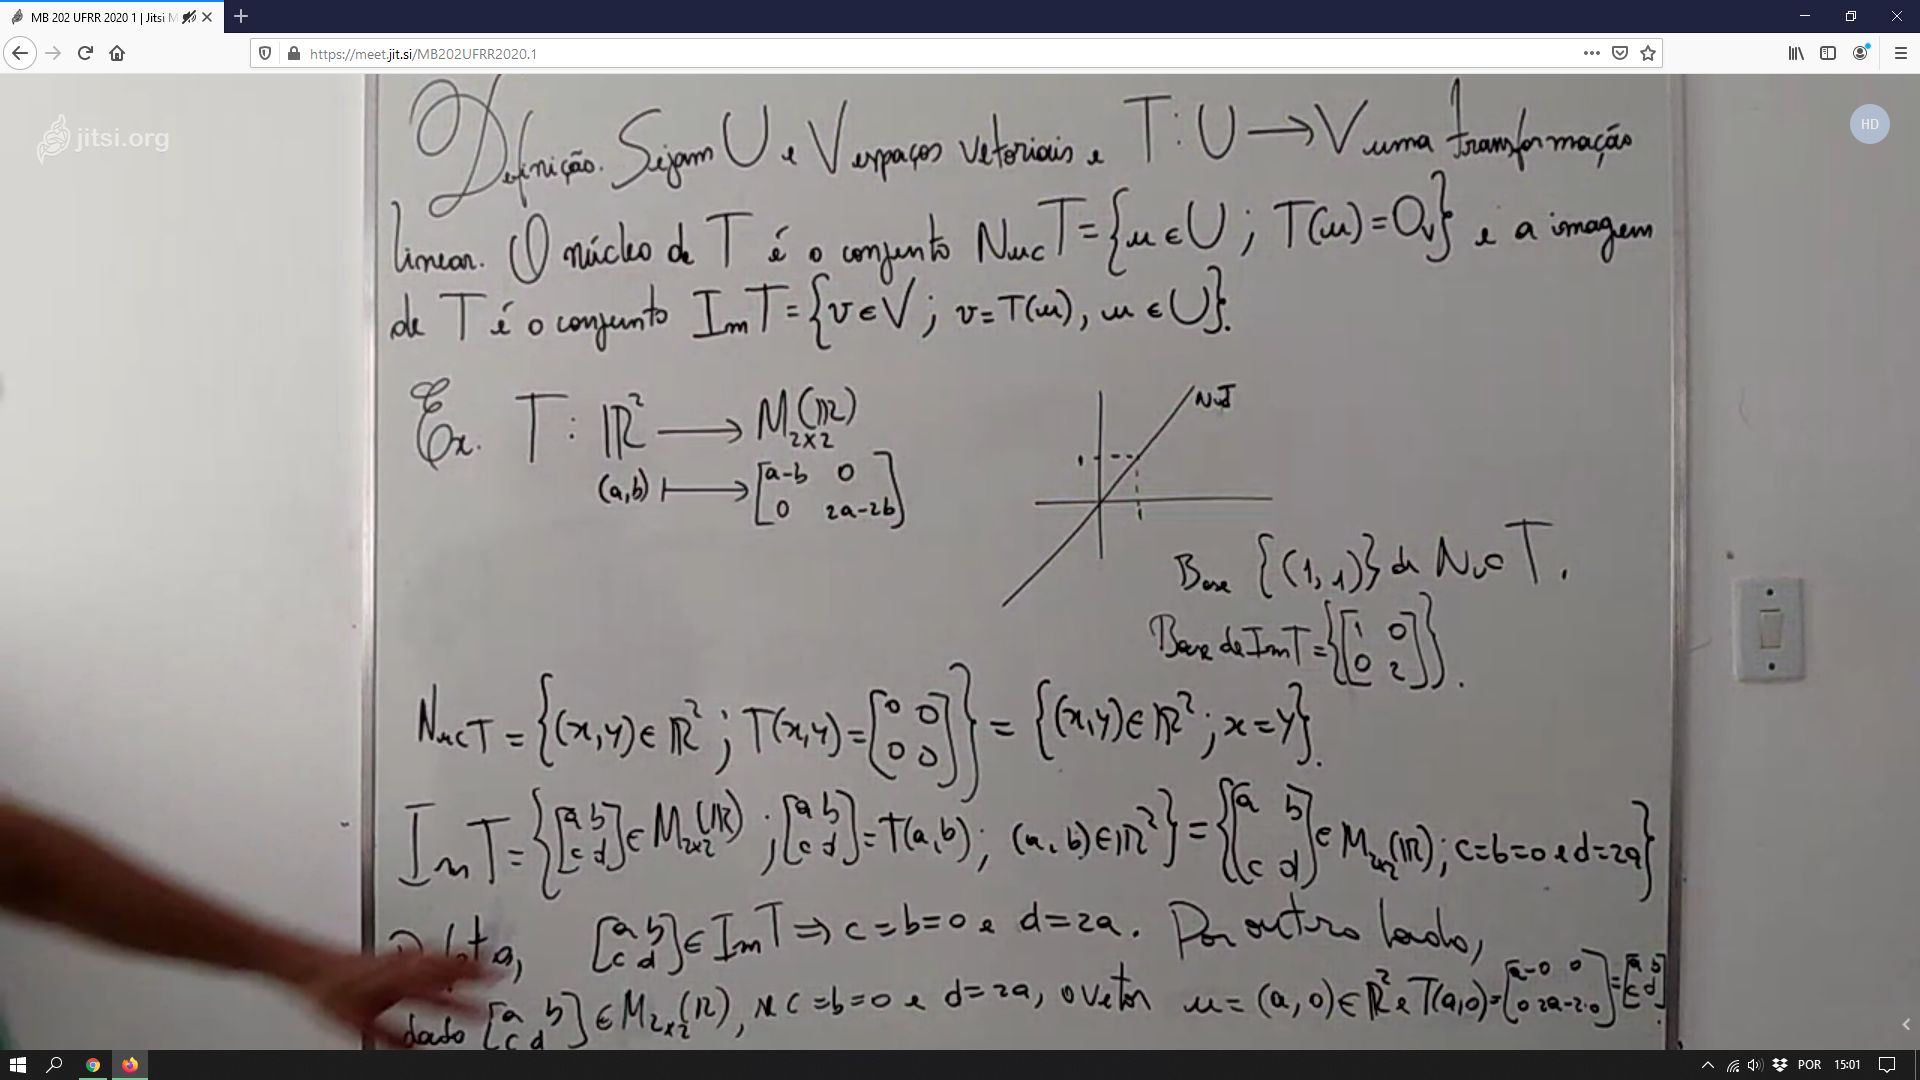 MB 202 UFRR 2020 1 | Jitsi M
https://meet.jit.si/MB202UFRR2020.1
jitsi.org
HD
Definição. Sejam U e V espaços vetoriais e T: U → V uma transformação
linear. O núcleo de T é o conjunto Nuc T = {u ∈ U ; T(u) = 0_V} e a imagem
de T é o conjunto Im T = {v ∈ V ; v = T(u), u ∈ U}.
Ex. T: ℝ² → M₂ₓ₂(ℝ)
(a,b) ↦ [a-b 0
0 2a-2b]
NucT
1
1
Base {(1,1)} de Nuc T.
Base de Im T = {[1 0
0 2]}.
Nuc T = {(x,y) ∈ ℝ² ; T(x,y) = [0 0
0 0]} = {(x,y) ∈ ℝ² ; x = y}.
Im T = {[a b
c d] ∈ M₂ₓ₂(ℝ) ; [a b
c d] = T(a,b) ; (a,b) ∈ ℝ²} = {[a b
c d] ∈ M₂ₓ₂(ℝ) ; c=b=0 e d=2a}
[a b
c d] ∈ Im T ⇒ c=b=0 e d=2a. Por outro lado,
dado [a b
c d] ∈ M₂ₓ₂(ℝ), se c=b=0 e d=2a, o vetor u = (a,0) ∈ ℝ² e T(a,0) = [a-0 0
0 2a-2·0] = [a b
c d].
POR
15:01